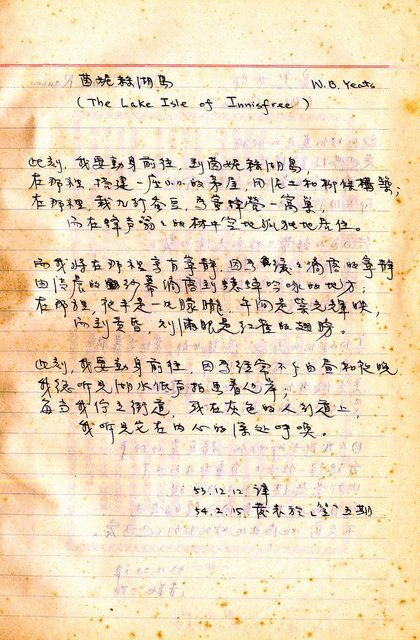 茵妮絲湖島 W.B. Yeats
(The Lake Isle of Innisfree)
此刻,我要動身前往,到茵妮絲湖島,
在那裡,搭建一座小小的茅屋,用泥土和柳條構築;
在那裡,栽九行蠶豆,為蜜蜂營一窩巢,
而在蜂聲嗡嗡的林中空地孤獨地居住。
而我將在那裡享有寧靜,因為緩緩滴落的寧靜
由清晨的紗幕滴落到蟋蟀吟咏的地方;
在那裡,夜半是一片朦朧,午間是紫光輝映,
而到黃昏,則滿眼是紅雀的翅膀。
此刻,我要動身前往,因為經常不分白晝和夜晚
我總聽見湖水低聲拍吻著近岸;
每當我佇立街道,或在灰色的人行道上,
我聽見它在內心的深處呼喚。
53.12.12. 譯
54.2.15. 發表於 五期